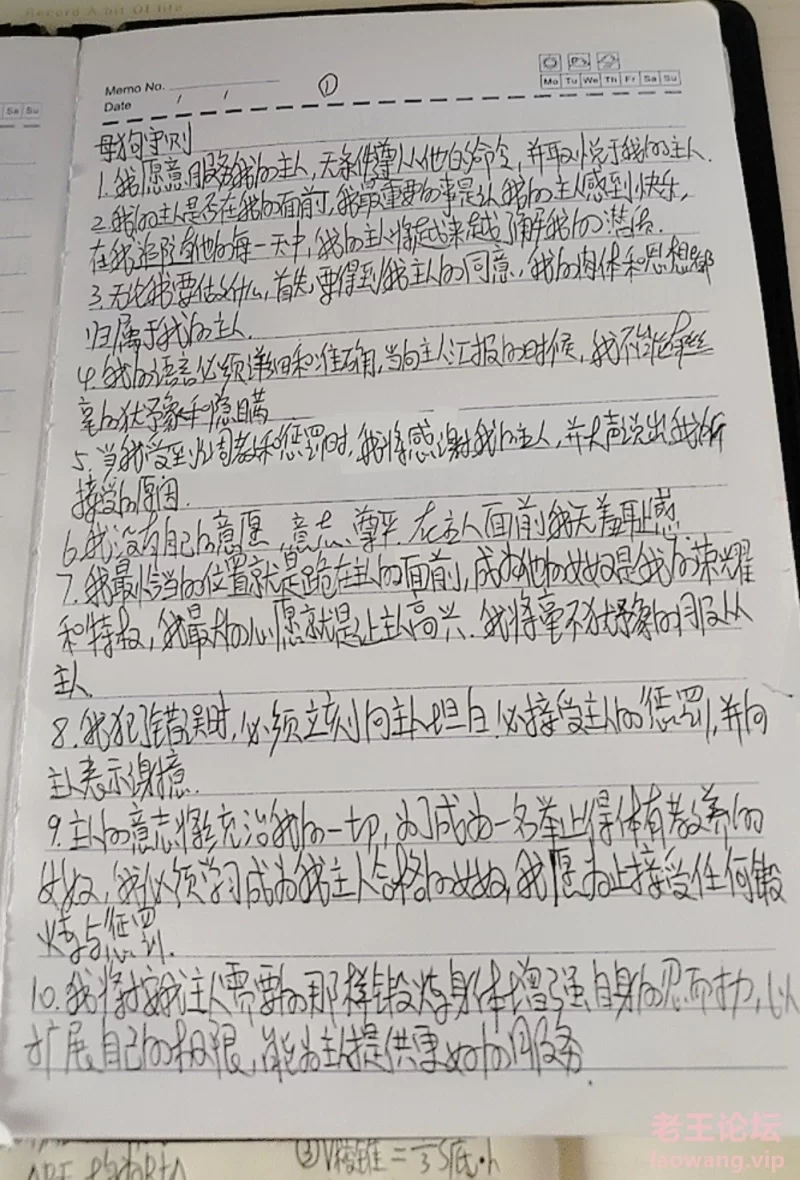 Record A bit Of life
Memo No.
①
Mo Tu We Th Fr Sa Su
Date / /
Sa Su
母狗守则
1.我愿意服务我的主人,无条件遵从他的命令,并取悦于我的主人.
2.我的主人是否在我的面前,我最重要的事是让我的主人感到快乐,
在我追随他的每一天中,我的主人将越来越了解我的
3.无论我要做什么,首先要得到我主人的同意,我的肉体和思想都
归属于我的主人.
4.我的语言必须详细和准确,当向主人汇报的时候,我不能有丝
毫的犹豫和隐瞒
5.当我受到调教和惩罚时,我将感谢我的主人,并大声说出我所
接受的原因.
6.我没有自己的意愿、意志、尊严.在主人面前我无羞耻感
7.我最恰当的位置就是跪在主人的面前,成为他的女奴是我的荣耀
和特权,我最大的心愿就是让主人高兴.我将毫不犹豫的服从
主人.
8.我犯了错误时,必须立刻向主人坦白.必接受主人的惩罚,并向
主人表示谢意.
9.主人的意志将统治我的一切,为了成为一名举止得体有教养的
女奴,我必须学习成为我主人合格的女奴,我愿为此接受任何锻
炼与惩罚.
10.我将按我主人需要的那样锻炼身体增强自身的忍耐力,以
扩展自己的极限,能为主人提供更好的服务.
③V棱锥=1/3S底·h
老王论坛
laowang.vip